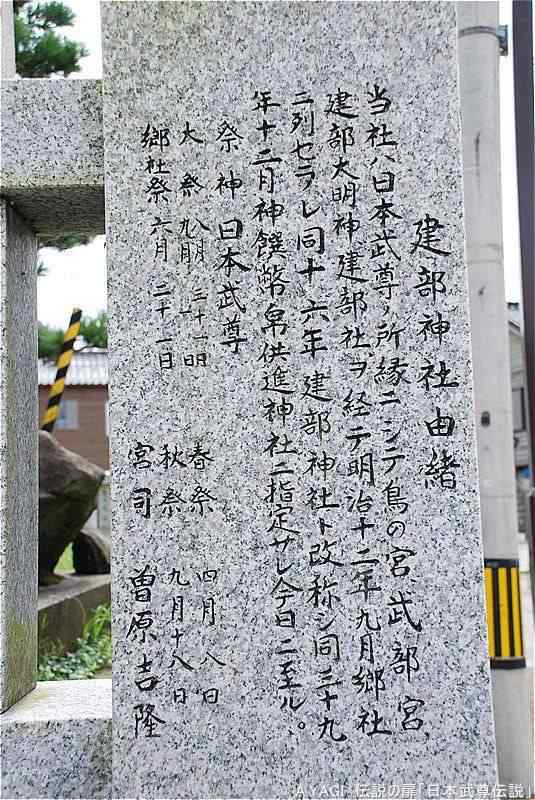 建部神社由緒
当社ハ日本武尊ノ所縁ニシテ鳥の宮、武部宮、
建部大明神、建部社、ヲ経テ明治十二年九月郷社
ニ列セラレ同十六年建部神社ト改称シ同三十九
年十二月神饌幣帛供進神社ニ指定サレ今日ニ至ル。
祭神 日本武尊
大祭 八月三十一日 九月一日
郷社祭 六月二十一日
春祭 四月八日
秋祭 九月十八日
宮司 曽原吉隆
A.YAGI 伝説の扉「日本武尊伝説」